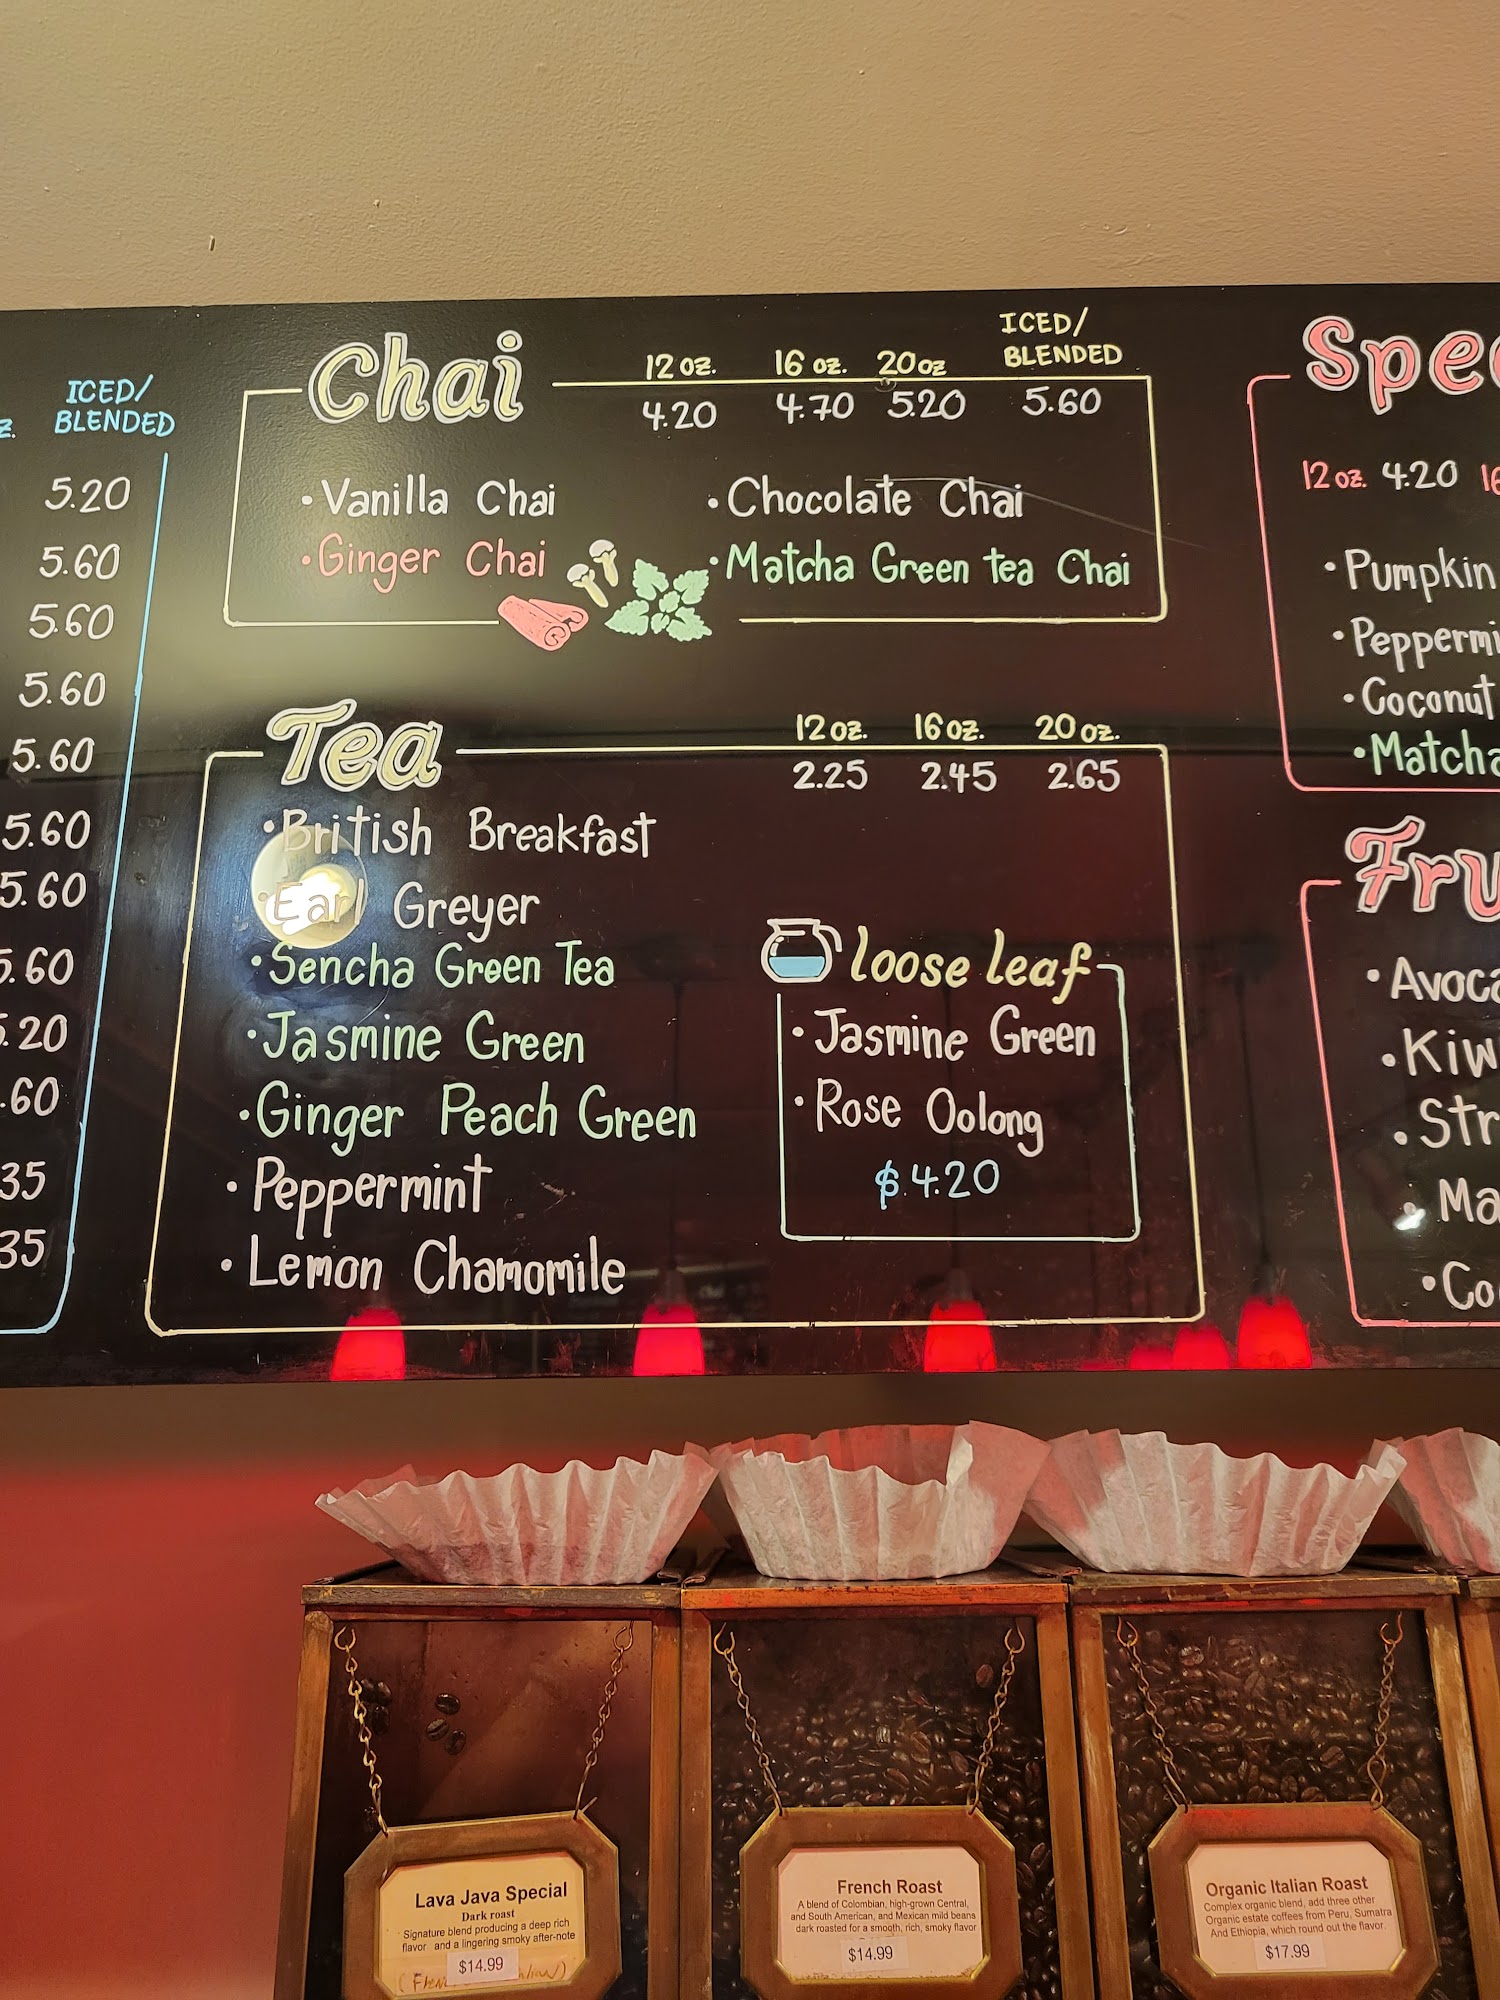 ICED/
BLENDED
5.20
5.60
5.60
5.60
5.60
5.60
5.60
5.60
.20
.60
35
35
Chai
12 oz. 16 oz. 20 oz ICED/
BLENDED
4.20 4.70 5.20 5.60
• Vanilla Chai
• Ginger Chai
• Chocolate Chai
• Matcha Green tea Chai
Tea
12 oz. 16 oz. 20 oz.
2.25 2.45 2.65
• British Breakfast
• Earl Greyer
• Sencha Green Tea
• Jasmine Green
• Ginger Peach Green
• Peppermint
• Lemon Chamomile
loose leaf
• Jasmine Green
• Rose Oolong
$4.20
Spec
12 oz. 4.20 16
• Pumpkin
• Peppermi
• Coconut
• Matcha
Fru
• Avoca
• Kiw
• Str
• Ma
• Co
Lava Java Special
Dark roast
Signature blend producing a deep rich
flavor and a lingering smoky after-note
$14.99
French Roast
A blend of Colombian, high-grown Central,
and South American, and Mexican mild beans
dark roasted for a smooth, rich, smoky flavor
$14.99
Organic Italian Roast
Complex organic blend, add three other
Organic estate coffees from Peru, Sumatra
And Ethiopia, which round out the flavor.
$17.99